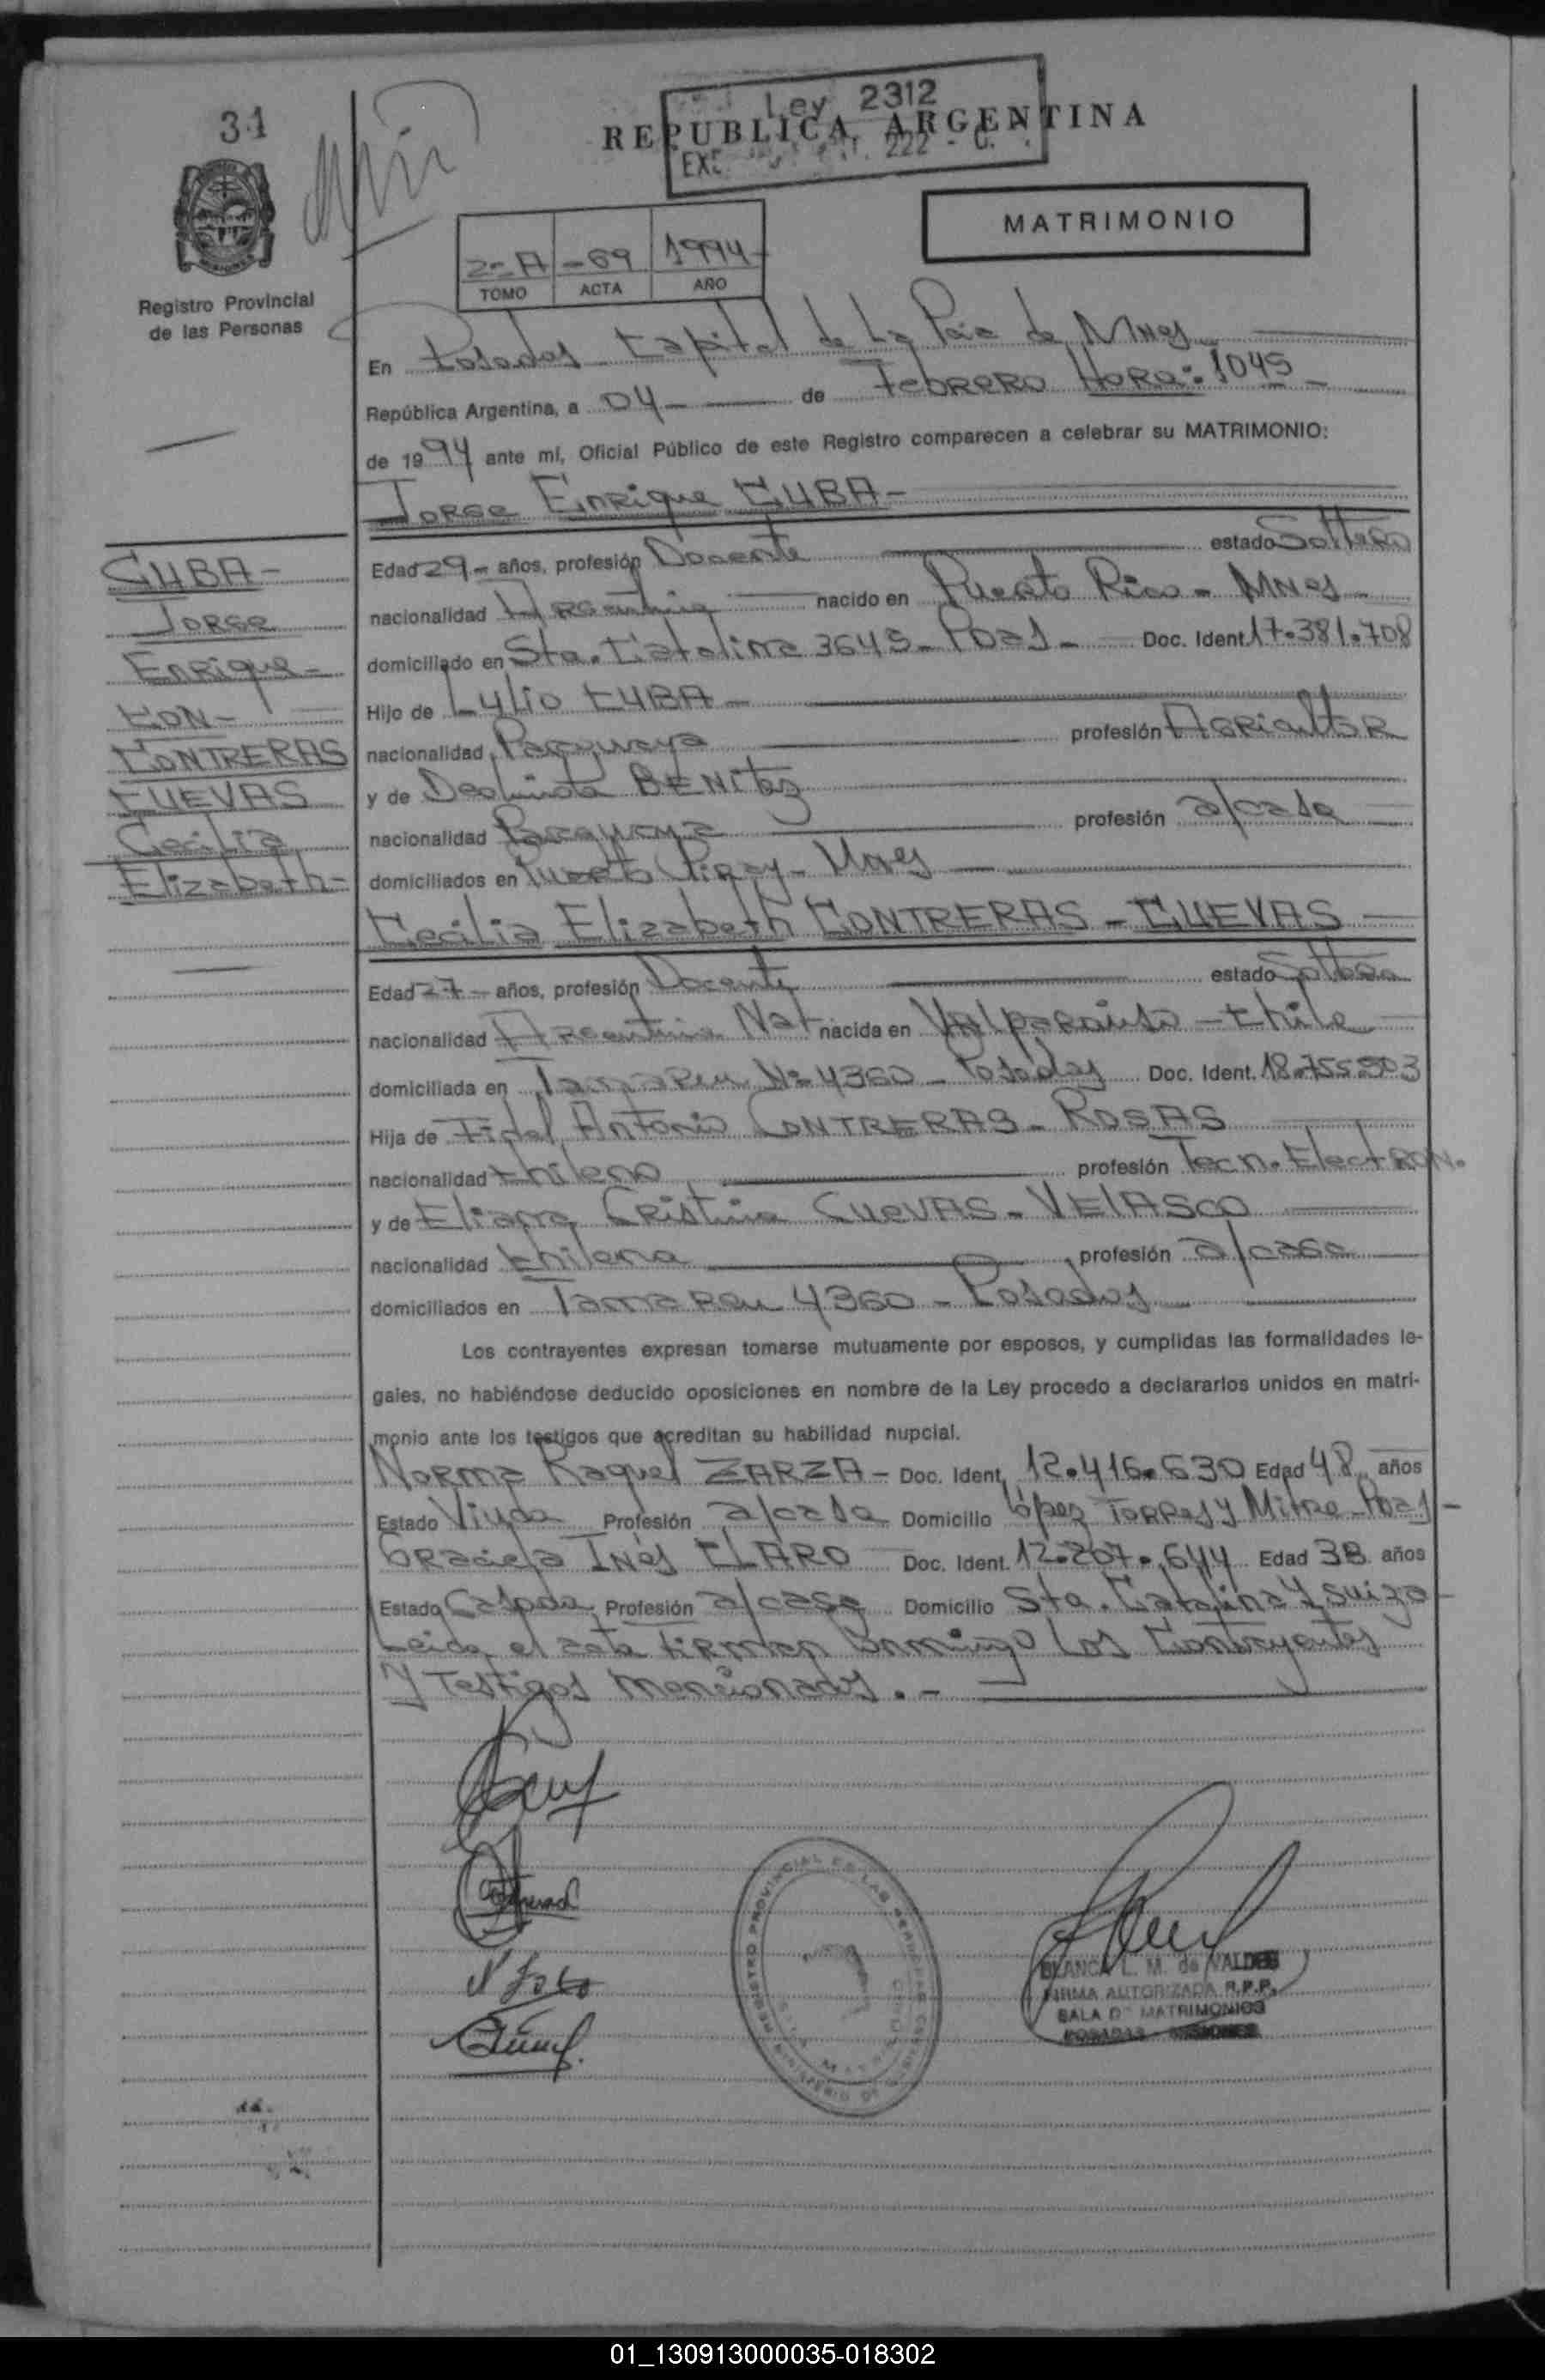 31
Ley 2312
REPUBLICA ARGENTINA
222 - C.
MATRIMONIO
2º A - 69 1994
TOMO ACTA AÑO
Registro Provincial
de las Personas
En Posadas Capital de La Pcia de Mnes
República Argentina, a 04 de Febrero Hora: 1045
de 1994 ante mí, Oficial Público de este Registro comparecen a celebrar su MATRIMONIO:
Jorge Enrique CUBA
CUBA
Jorge
Enrique
CON
CONTRERAS
CUEVAS
Cecilia
Elizabeth
Edad 29 años, profesión Docente estado Soltero
nacionalidad Argentina nacido en Puerto Rico - Mnes
domiciliado en Sta. Catalina 3645 - Pdas - Doc. Ident. 17.381.708
Hijo de Lylio CUBA
nacionalidad Paraguaya profesión Agricultor
y de BENITEZ
nacionalidad Paraguaya profesión a/casa
domiciliados en Puerto Piray - Mnes
Cecilia Elizabeth CONTRERAS - CUEVAS
Edad 27 años, profesión Docente estado Soltera
nacionalidad Argentina Nat nacida en Valparaiso - Chile
domiciliada en Tamareu Nº 4360 - Posadas Doc. Ident. 18.755.903
Hija de Fidel Antonio CONTRERAS - ROSAS
nacionalidad Chileno profesión Tecn. Electron.
y de Eliana Cristina CUEVAS - VELASCO
nacionalidad Chilena profesión a/casa
domiciliados en Tamareu 4360 - Posadas
Los contrayentes expresan tomarse mutuamente por esposos, y cumplidas las formalidades le-
gales, no habiéndose deducido oposiciones en nombre de la Ley procedo a declararlos unidos en matri-
monio ante los testigos que acreditan su habilidad nupcial.
Norma Raquel ZARZA - Doc. Ident. 12.416.630 Edad 48 años
Estado Viuda Profesión a/casa Domicilio López Torres y Mitre - Pdas -
Graciela Inés CLARO Doc. Ident. 12.207.644 Edad 38 años
Estado Casada Profesión a/casa Domicilio Sta. Catalina y Suiza
Leida el acta firman conmigo Los Contrayentes
y Testigos mencionados . -
BLANCA L. M. de VALDES
FIRMA AUTORIZADA R.P.P.
SALA DE MATRIMONIOS
POSADAS MISIONES
01_130913000035-018302